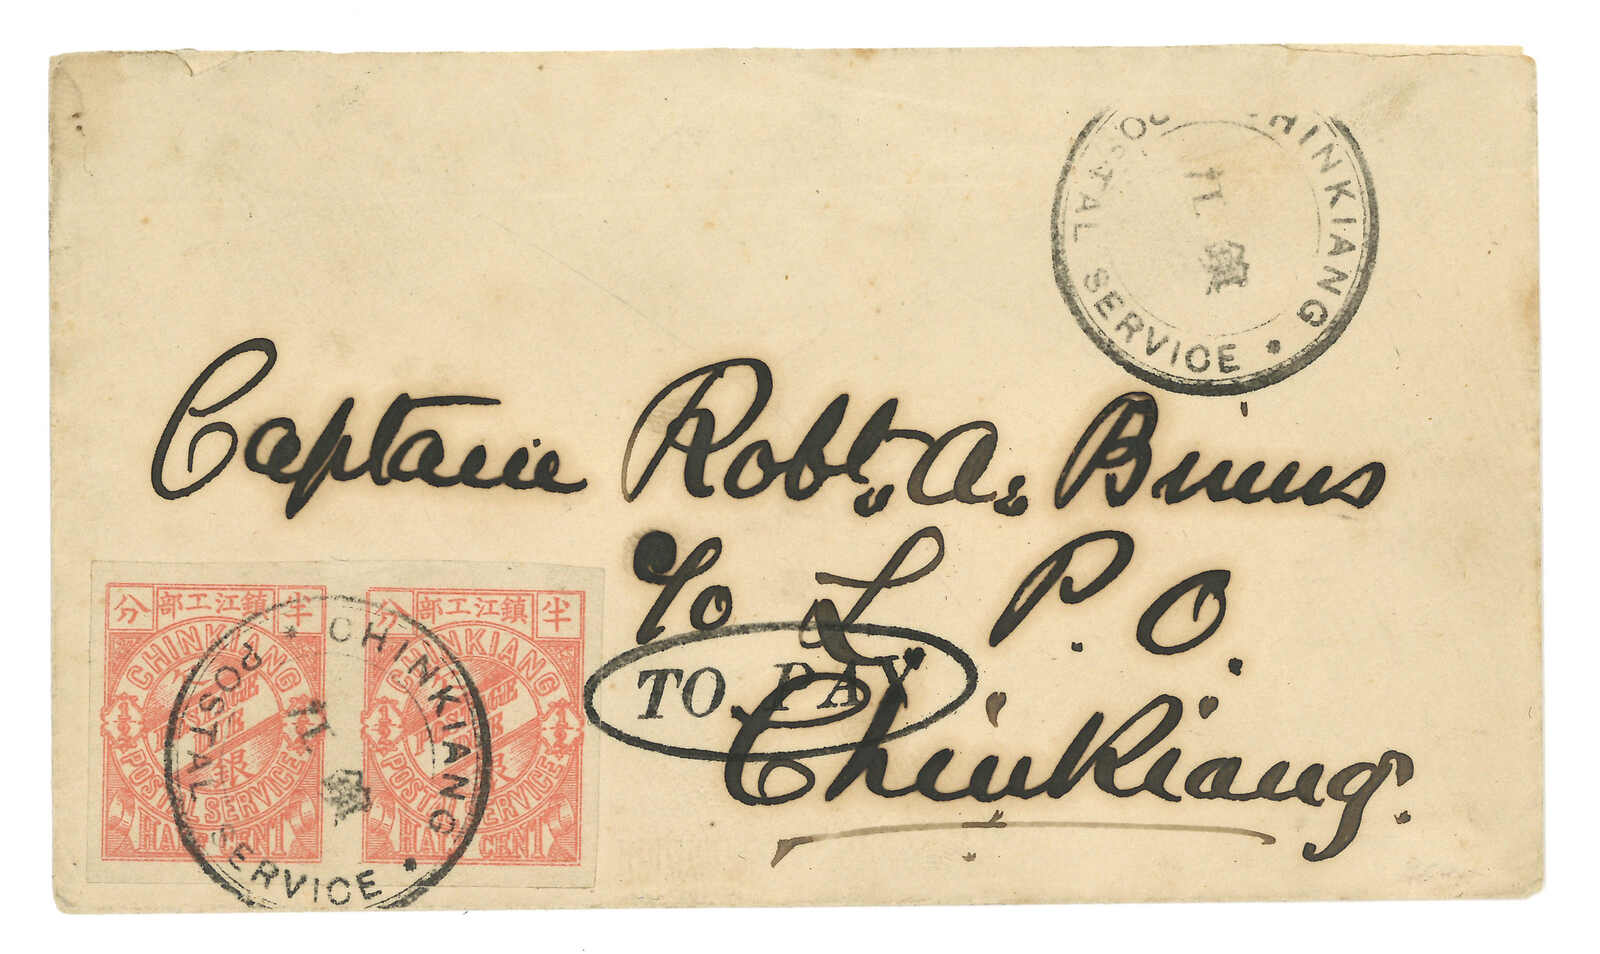 CHINKIANG
POSTAL SERVICE
Captain Robt. A. Binns
c/o L. P. O.
TO PAY
Chinkiang.
分 部工江鎮 半
CHINKIANG
POSTAL SERVICE
HALF CENT
分 部工江鎮 半
CHINKIANG
POSTAL SERVICE
HALF CENT
CHINKIANG
POSTAL SERVICE